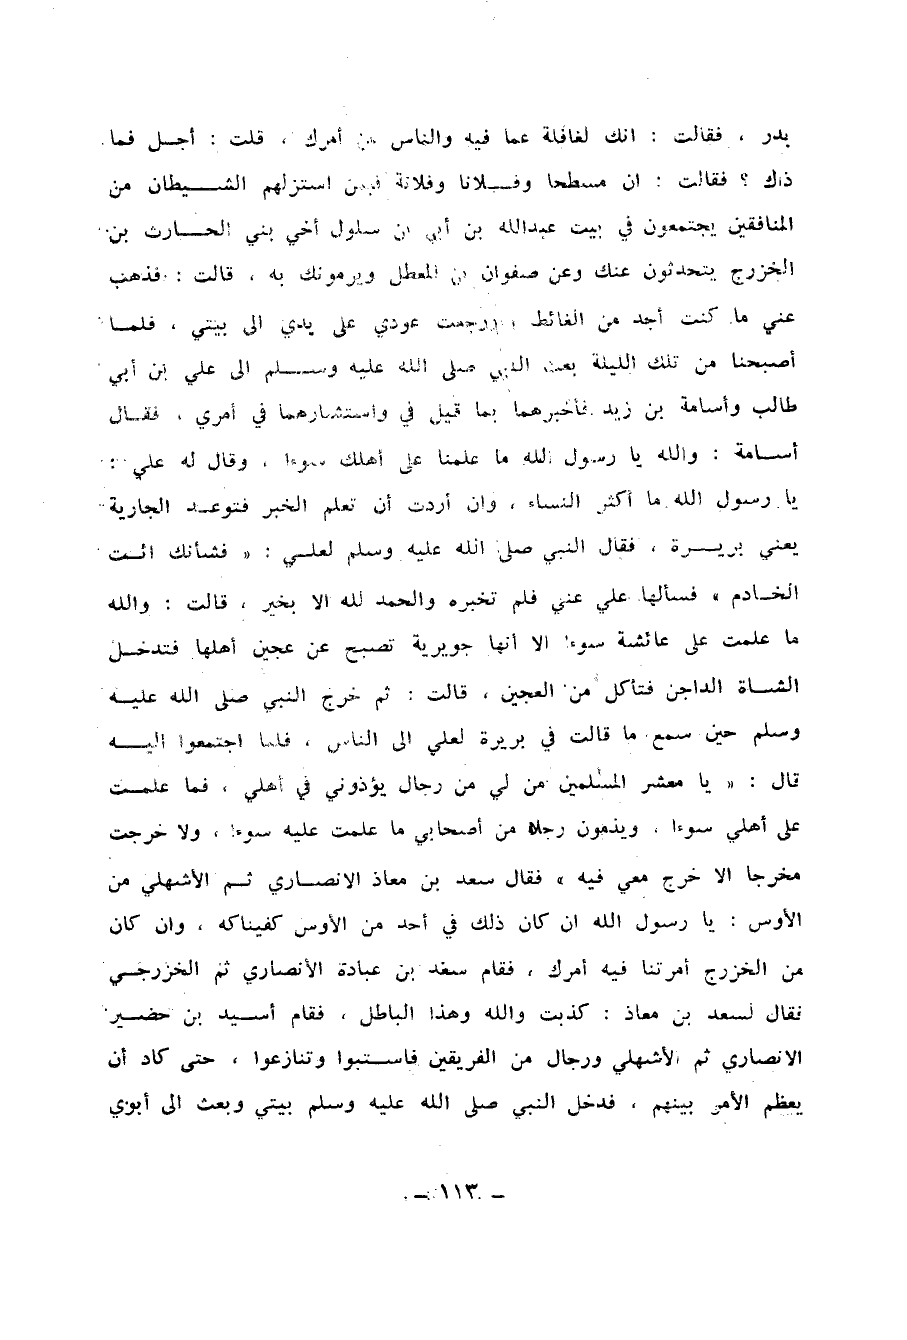 بدر ، فقالت : انك لغافلة عما فيه والناس من أمرك ، قلت : أجل فما
ذاك ؟ فقالت : ان مسطحا وفلانا وفلانة فيمن استزلهم الشيطان من
المنافقين يجتمعون في بيت عبدالله بن أبي بن سلول أخي بني الحارث بن
الخزرج يتحدثون عنك وعن صفوان بن المعطل ويرمونك به ، قالت : فذهب
عني ما كنت أجد من الغائط ، ورجعت عودي على يدي الى بيتي ، فلما
أصبحنا من تلك الليلة بعث النبي صلى الله عليه وسلم الى علي بن أبي
طالب وأسامة بن زيد فأخبرهما بما قيل في واستشارهما في أمري ، فقال
أسامة : والله يا رسول الله ما علمنا على أهلك سوءا ، وقال له علي :
يا رسول الله ما أكثر النساء ، وان أردت أن تعلم الخبر فتوعد الجارية
يعني بريرة ، فقال النبي صلى الله عليه وسلم لعلي : « فشأنك ائت
الخادم » فسألها علي عني فلم تخبره والحمد لله الا بخير ، قالت : والله
ما علمت على عائشة سوءا الا أنها جويرية تصبح عن عجين أهلها فتدخل
الشاة الداجن فتأكل من العجين ، قالت : ثم خرج النبي صلى الله عليه
وسلم حين سمع ما قالت في بريرة لعلي الى الناس ، فلما اجتمعوا اليه
قال : « يا معشر المسلمين من لي من رجال يؤذوني في أهلي ، فما علمت
على أهلي سوءا ، ويذمون رجلا من أصحابي ما علمت عليه سوءا ، ولا خرجت
مخرجا الا خرج معي فيه » فقال سعد بن معاذ الانصاري ثم الأشهلي من
الأوس : يا رسول الله ان كان ذلك في أحد من الأوس كفيناكه ، وان كان
من الخزرج أمرتنا فيه أمرك ، فقام سعد بن عبادة الأنصاري ثم الخزرجي
فقال لسعد بن معاذ : كذبت والله وهذا الباطل ، فقام أسيد بن حضير
الانصاري ثم الأشهلي ورجال من الفريقين فاستبوا وتنازعوا ، حتى كاد أن
يعظم الأمر بينهم ، فدخل النبي صلى الله عليه وسلم بيتي وبعث الى أبوي
– ١١٣ –